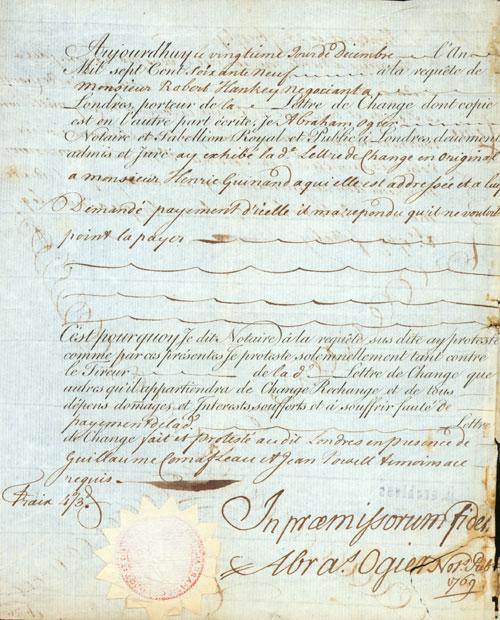 Aujourdhuy le vingtieme Jour de Decembre l'An
Mil Sept Cent Soixante neuf à la requête de
monsieur Robert Hankey negociant a
Londres, porteur de la Lettre de Change dont copie
est en l'autre part ecrite, Je Abraham Ogier
Notaire et Tabellion Royal et Public à Londres, deuement
admis et Juré ay exhibé lad.e Lettre de Change en original
a monsieur Henric Guinand a qui elle est addressée et a luy
Demandé payement d'icelle il m'a repondu qu'il ne vouloit
point la payer
C'est pourquoy Je dit Notaire, à la requête sus dite ay protesté
comme par ces présentes Je proteste solemnellement tant contre
le Tireur de lad.e Lettre de Change que
autres qu'il appartiendra de Change Rechange et de tous
dépens domages et Interests soufferts et à souffrir faute de
payement de lad.e Lettre
de Change fait et Protesté audit Londres en presence de
Guillaume et Jean Powell temoins ace
requis
Fraix 4/3.d
In præmissorum fidem
Abra.m Ogier Not.s Pub
1769